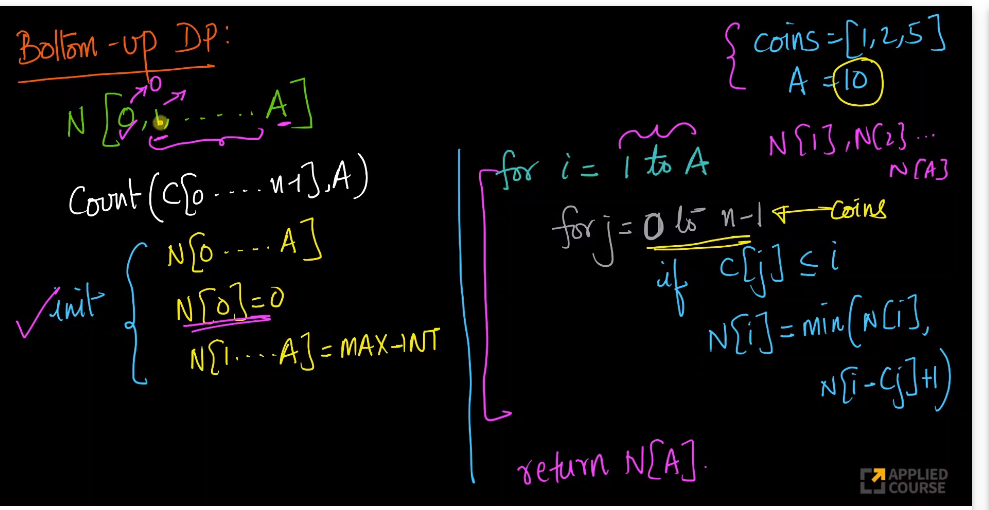 Bottom-up DP:
0
N[0,1,......A]
Count(C[0....n-1],A)
init
N[0....A]
N[0]=0
N[1....A]=MAX-INT
coins=[1,2,5]
A=10
N[1],N[2]...
N[A]
for i = 1 to A
for j = 0 to n-1 ← coins
if C[j] ≤ i
N[i]=min(N[i],
N[i-Cj]+1)
return N[A].
APPLIED
COURSE